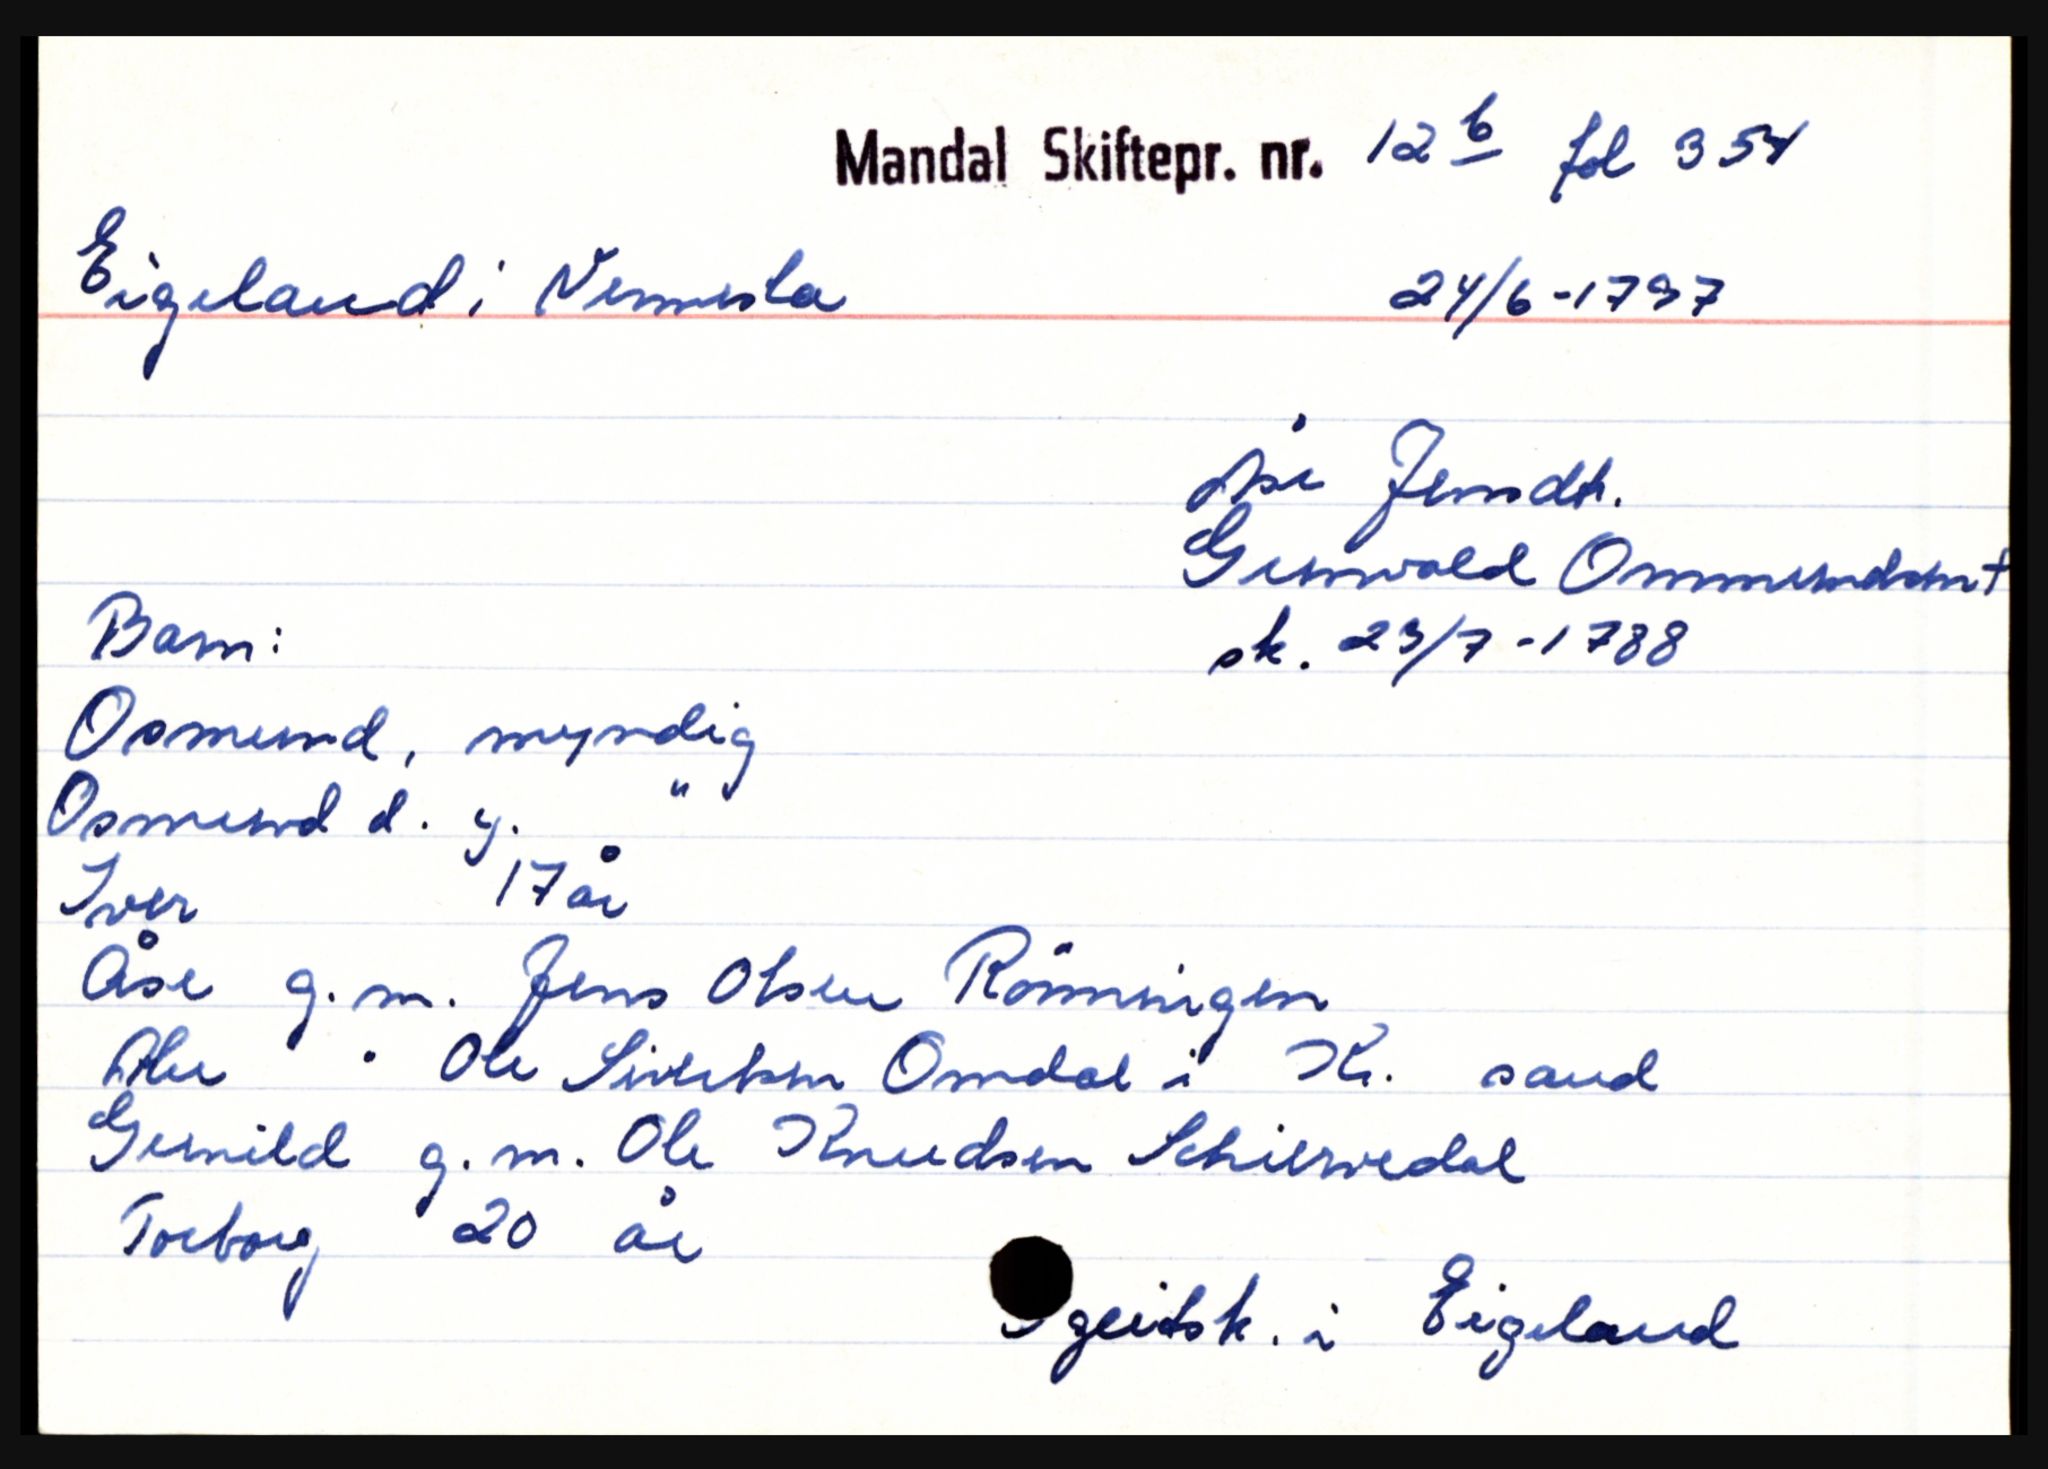 Mandal Skiftepr. nr. 12 b fol 354
Eigeland i Vennesla 24/6-1797
Åse Jensdtr.
Gunvald Ommundsen +
sk. 23/7-1788
Barn:
Osmund, myndig
Osmund d. y. "
Iver 17 år
Åse g. m. Jens Olsen Rönningen
Ole Sivertsen Omdal i Kr. sand
Gunild g. m. Ole Knudsen Schiervedal
Torborg 20 år
i Eigeland